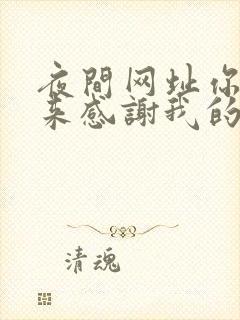 夜間网址你
来感謝我的
清魂